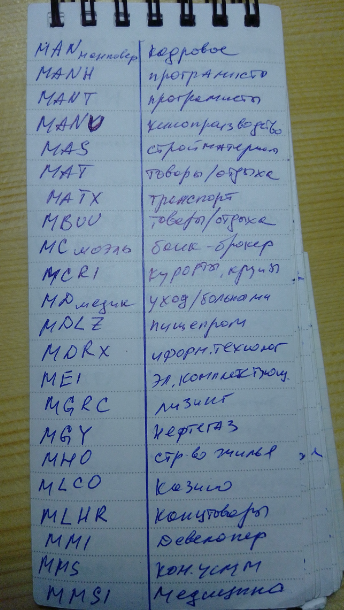 MAN манповер кадровое
MANH програмисто
MANT програмисты
MANU кинопроизводство
MAS стройматериалы
MAT товоры/отдыха
MATX транспорт
MBUU товоры/отдыха
MC моэль банк-брокер
MCRI курорты, круизы
MD медик уход/больными
MDLZ пищепром
MDRX информ. технолог
MEI эл. комплектующ.
MGRC лизинг
MGY нефтегаз
MHO стр-во жилья
MLCO казино
MLHR канцтовары
MMI Девелопер
MMS
MMSI Медицина